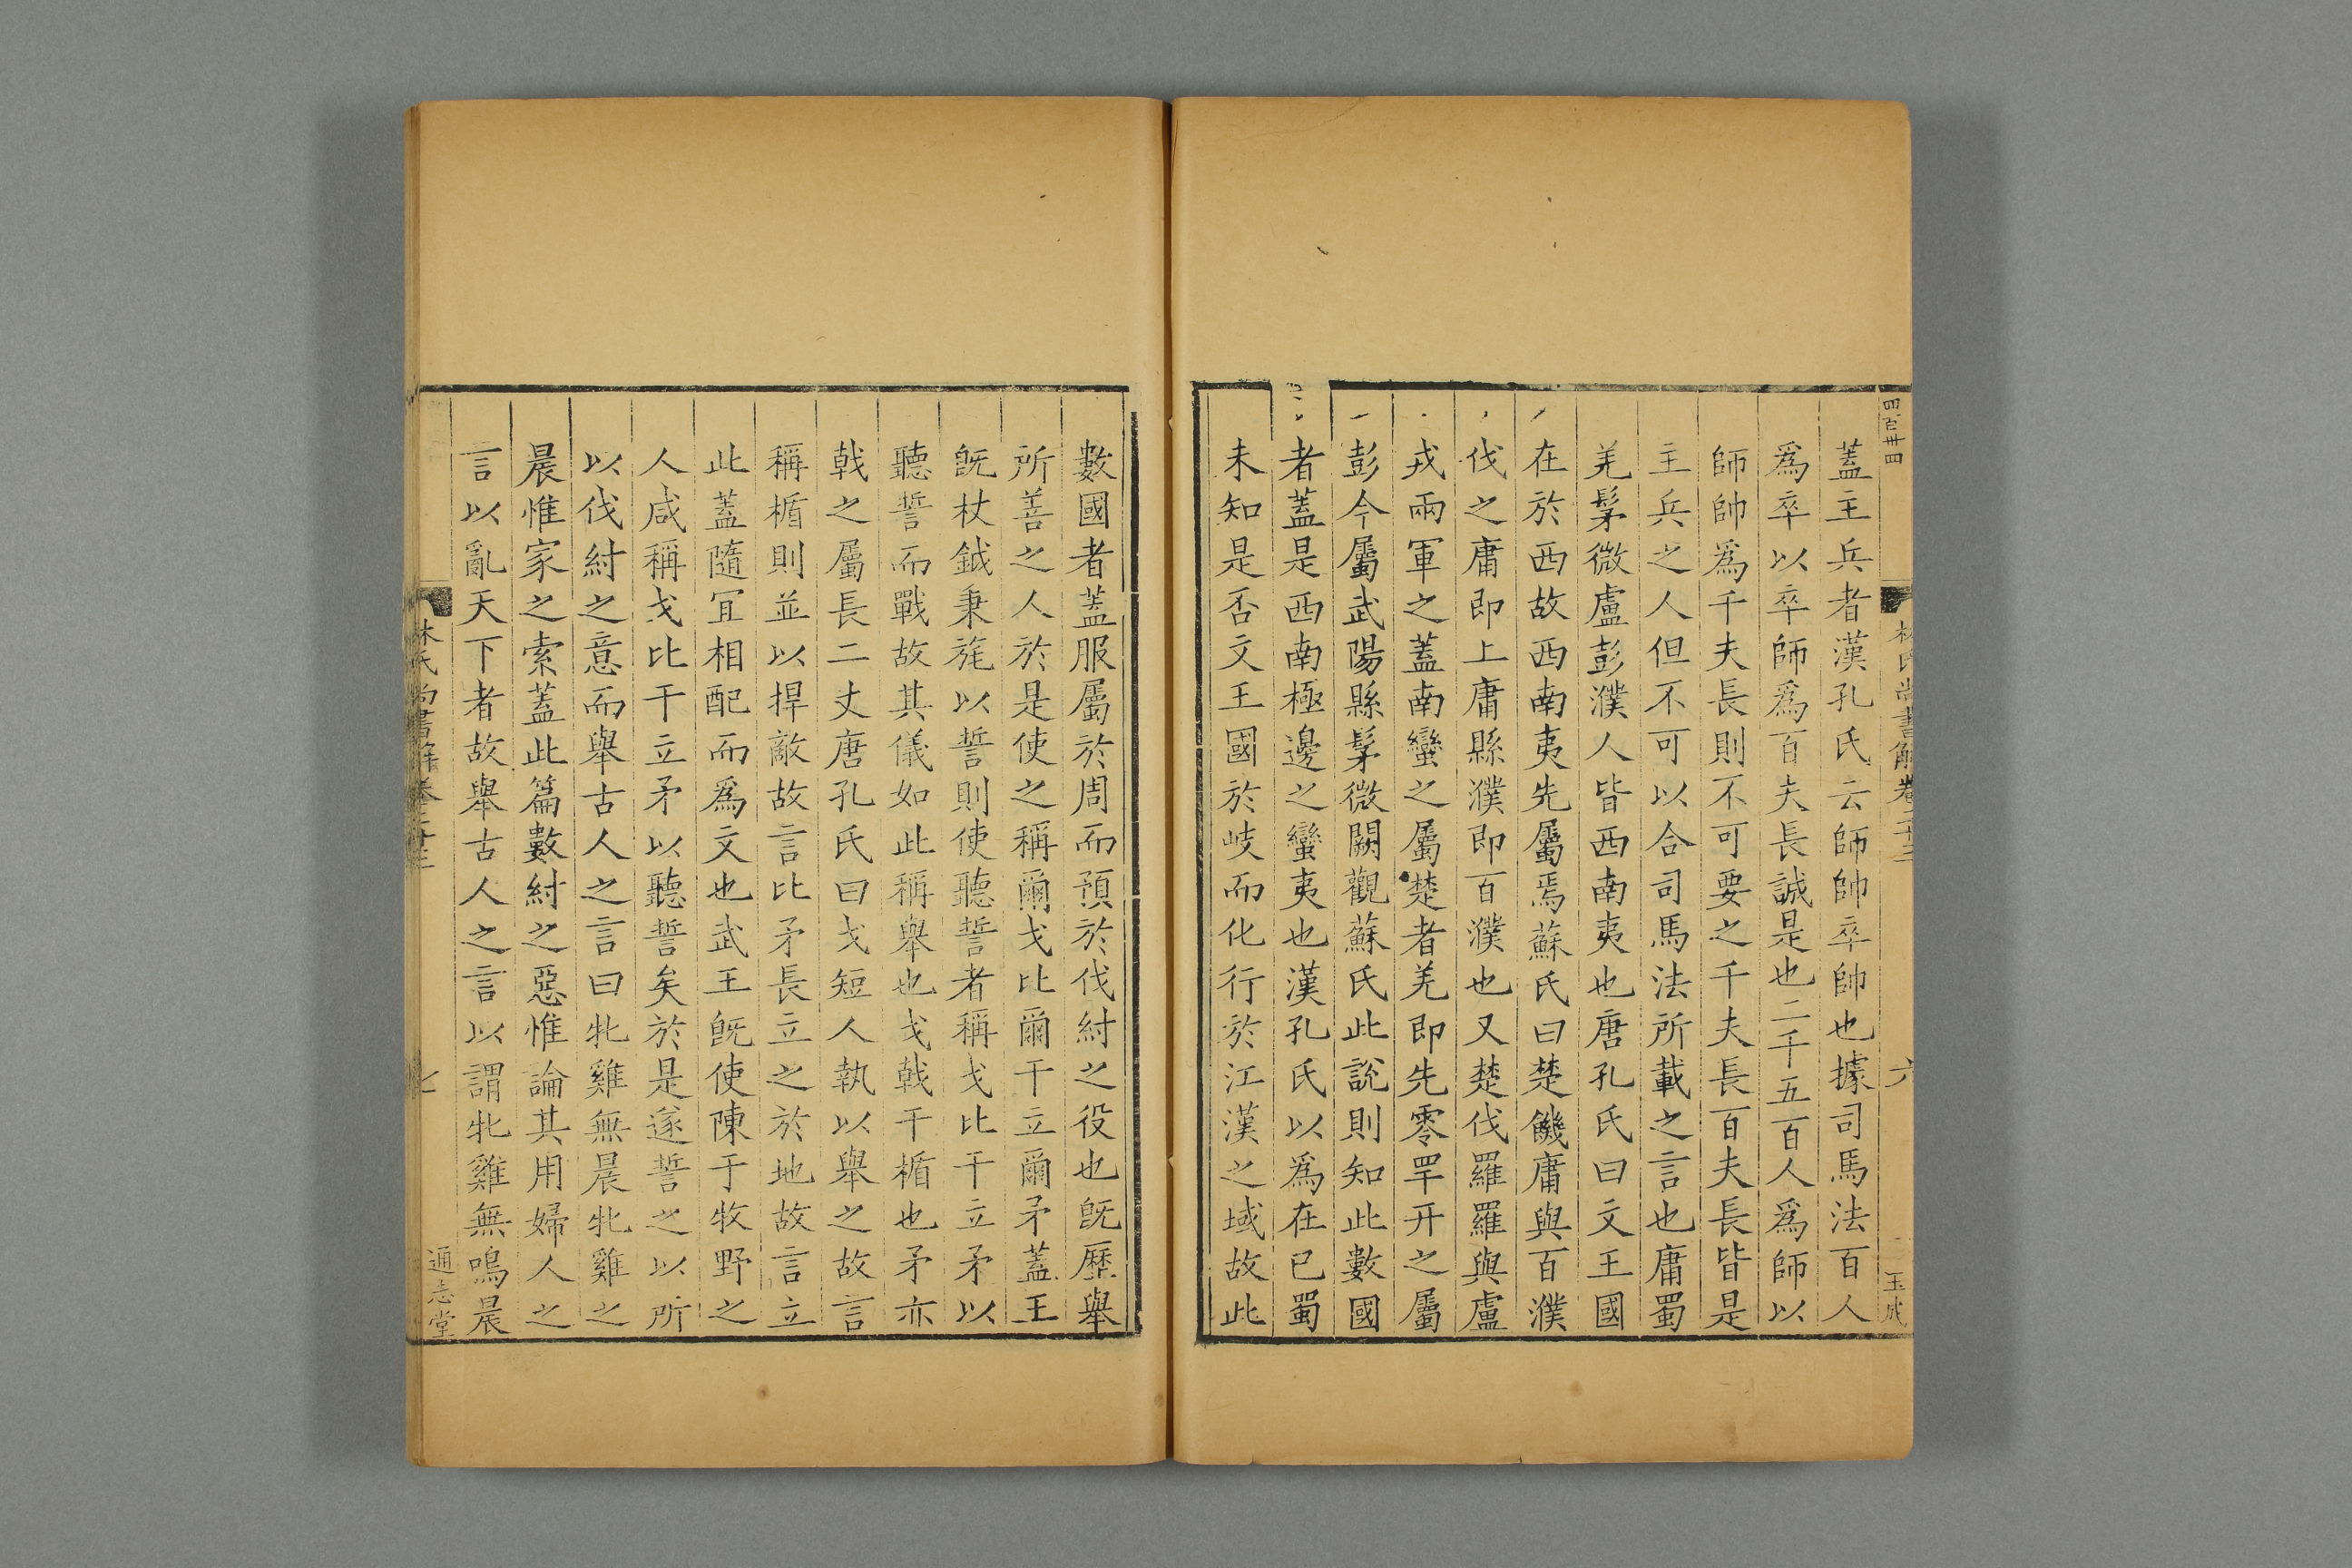 四百卅四
林氏尚書解卷二十三
六
玉成
蓋主兵者漢孔氏云師帥卒帥也據司馬法百人
爲卒以卒師爲百夫長誠是也二千五百人爲師以
師帥爲千夫長則不可要之千夫長百夫長皆是
主兵之人但不可以合司馬法所載之言也庸蜀
羌髳微盧彭濮人皆西南夷也唐孔氏曰文王國
在於西故西南夷先屬焉蘇氏曰楚饑庸與百濮
伐之庸即上庸縣濮即百濮也又楚伐羅羅與盧
戎兩軍之蓋南蠻之屬楚者羌即先零罕幵之屬
彭今屬武陽縣髳微闕觀蘇氏此說則知此數國
者蓋是西南極邊之蠻夷也漢孔氏以爲在巴蜀
未知是否文王國於岐而化行於江漢之域故此
數國者蓋服屬於周而預於伐紂之役也旣歷舉
所善之人於是使之稱爾戈比爾干立爾矛蓋王
旣杖鉞秉旄以誓則使聽誓者稱戈比干立矛以
聽誓而戰故其儀如此稱舉也戈戟干楯也矛亦
戟之屬長二丈唐孔氏曰戈短人執以舉之故言
稱楯則並以捍敵故言比矛長立之於地故言立
此蓋隨宜相配而爲文也武王旣使陳于牧野之
人咸稱戈比干立矛以聽誓矣於是遂誓之以所
以伐紂之意而舉古人之言曰牝雞無晨牝雞之
晨惟家之索蓋此篇數紂之惡惟論其用婦人之
言以亂天下者故舉古人之言以謂牝雞無鳴晨
林氏尚書解卷二十三
七
通志堂